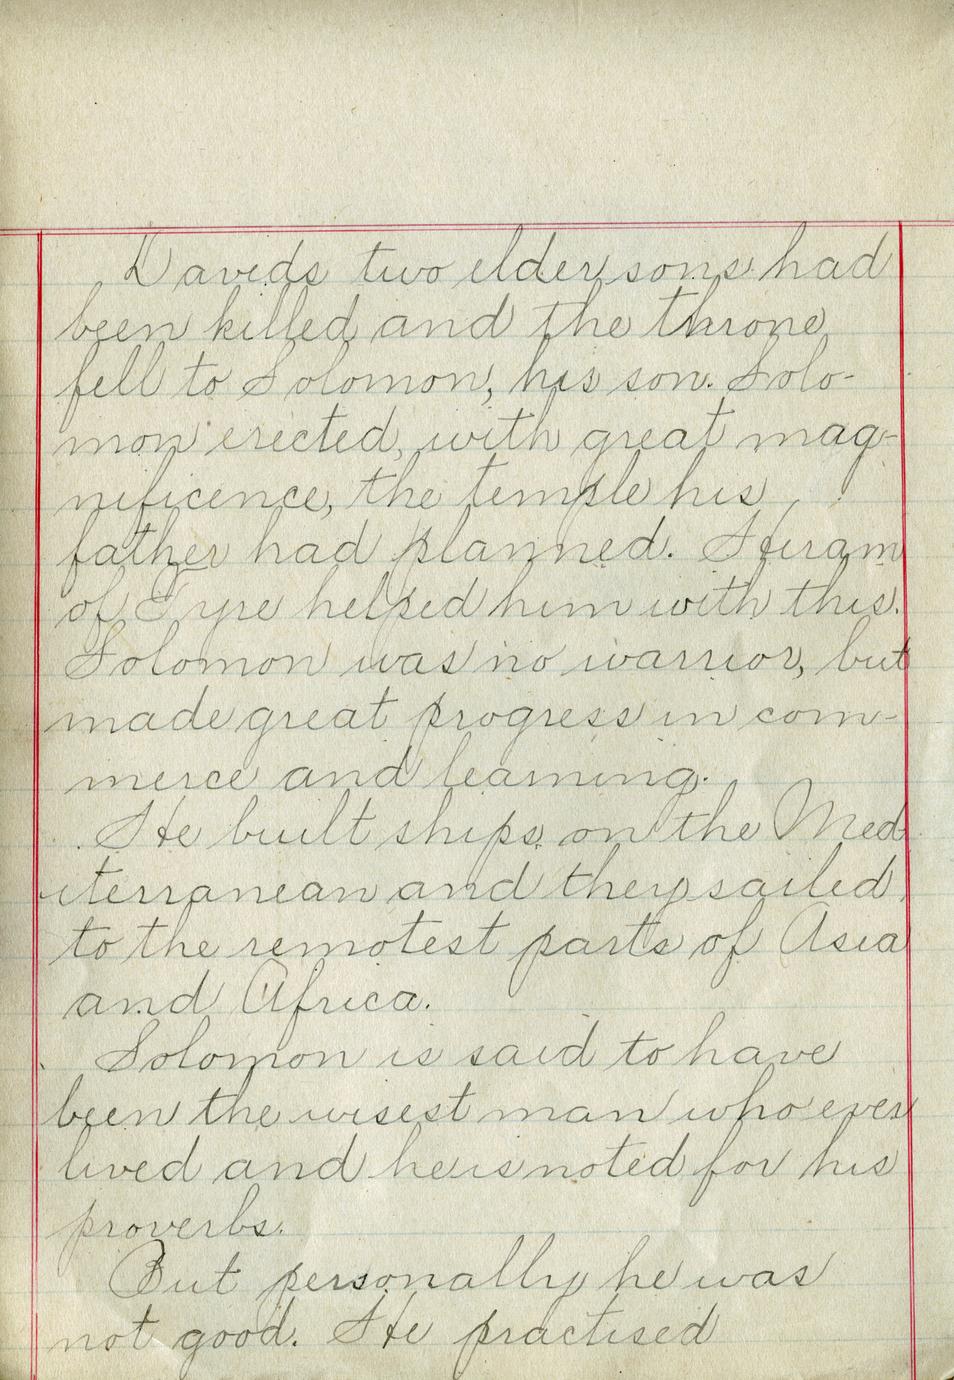 Davids two elder sons had
been killed and the throne
fell to Solomon, his son. Solo-
mon erected, with great mag-
nificence, the temple his
father had planned. Hiram
of Tyre helped him with this.
Solomon was no warrior, but
made great progress in com-
merce and learning.
He built ships on the Med
iterranean and they sailed
to the remotest parts of Asia
and Africa.
Solomon is said to have
been the wisest man who ever
lived and he is noted for his
proverbs.
But personally he was
not good. He practised